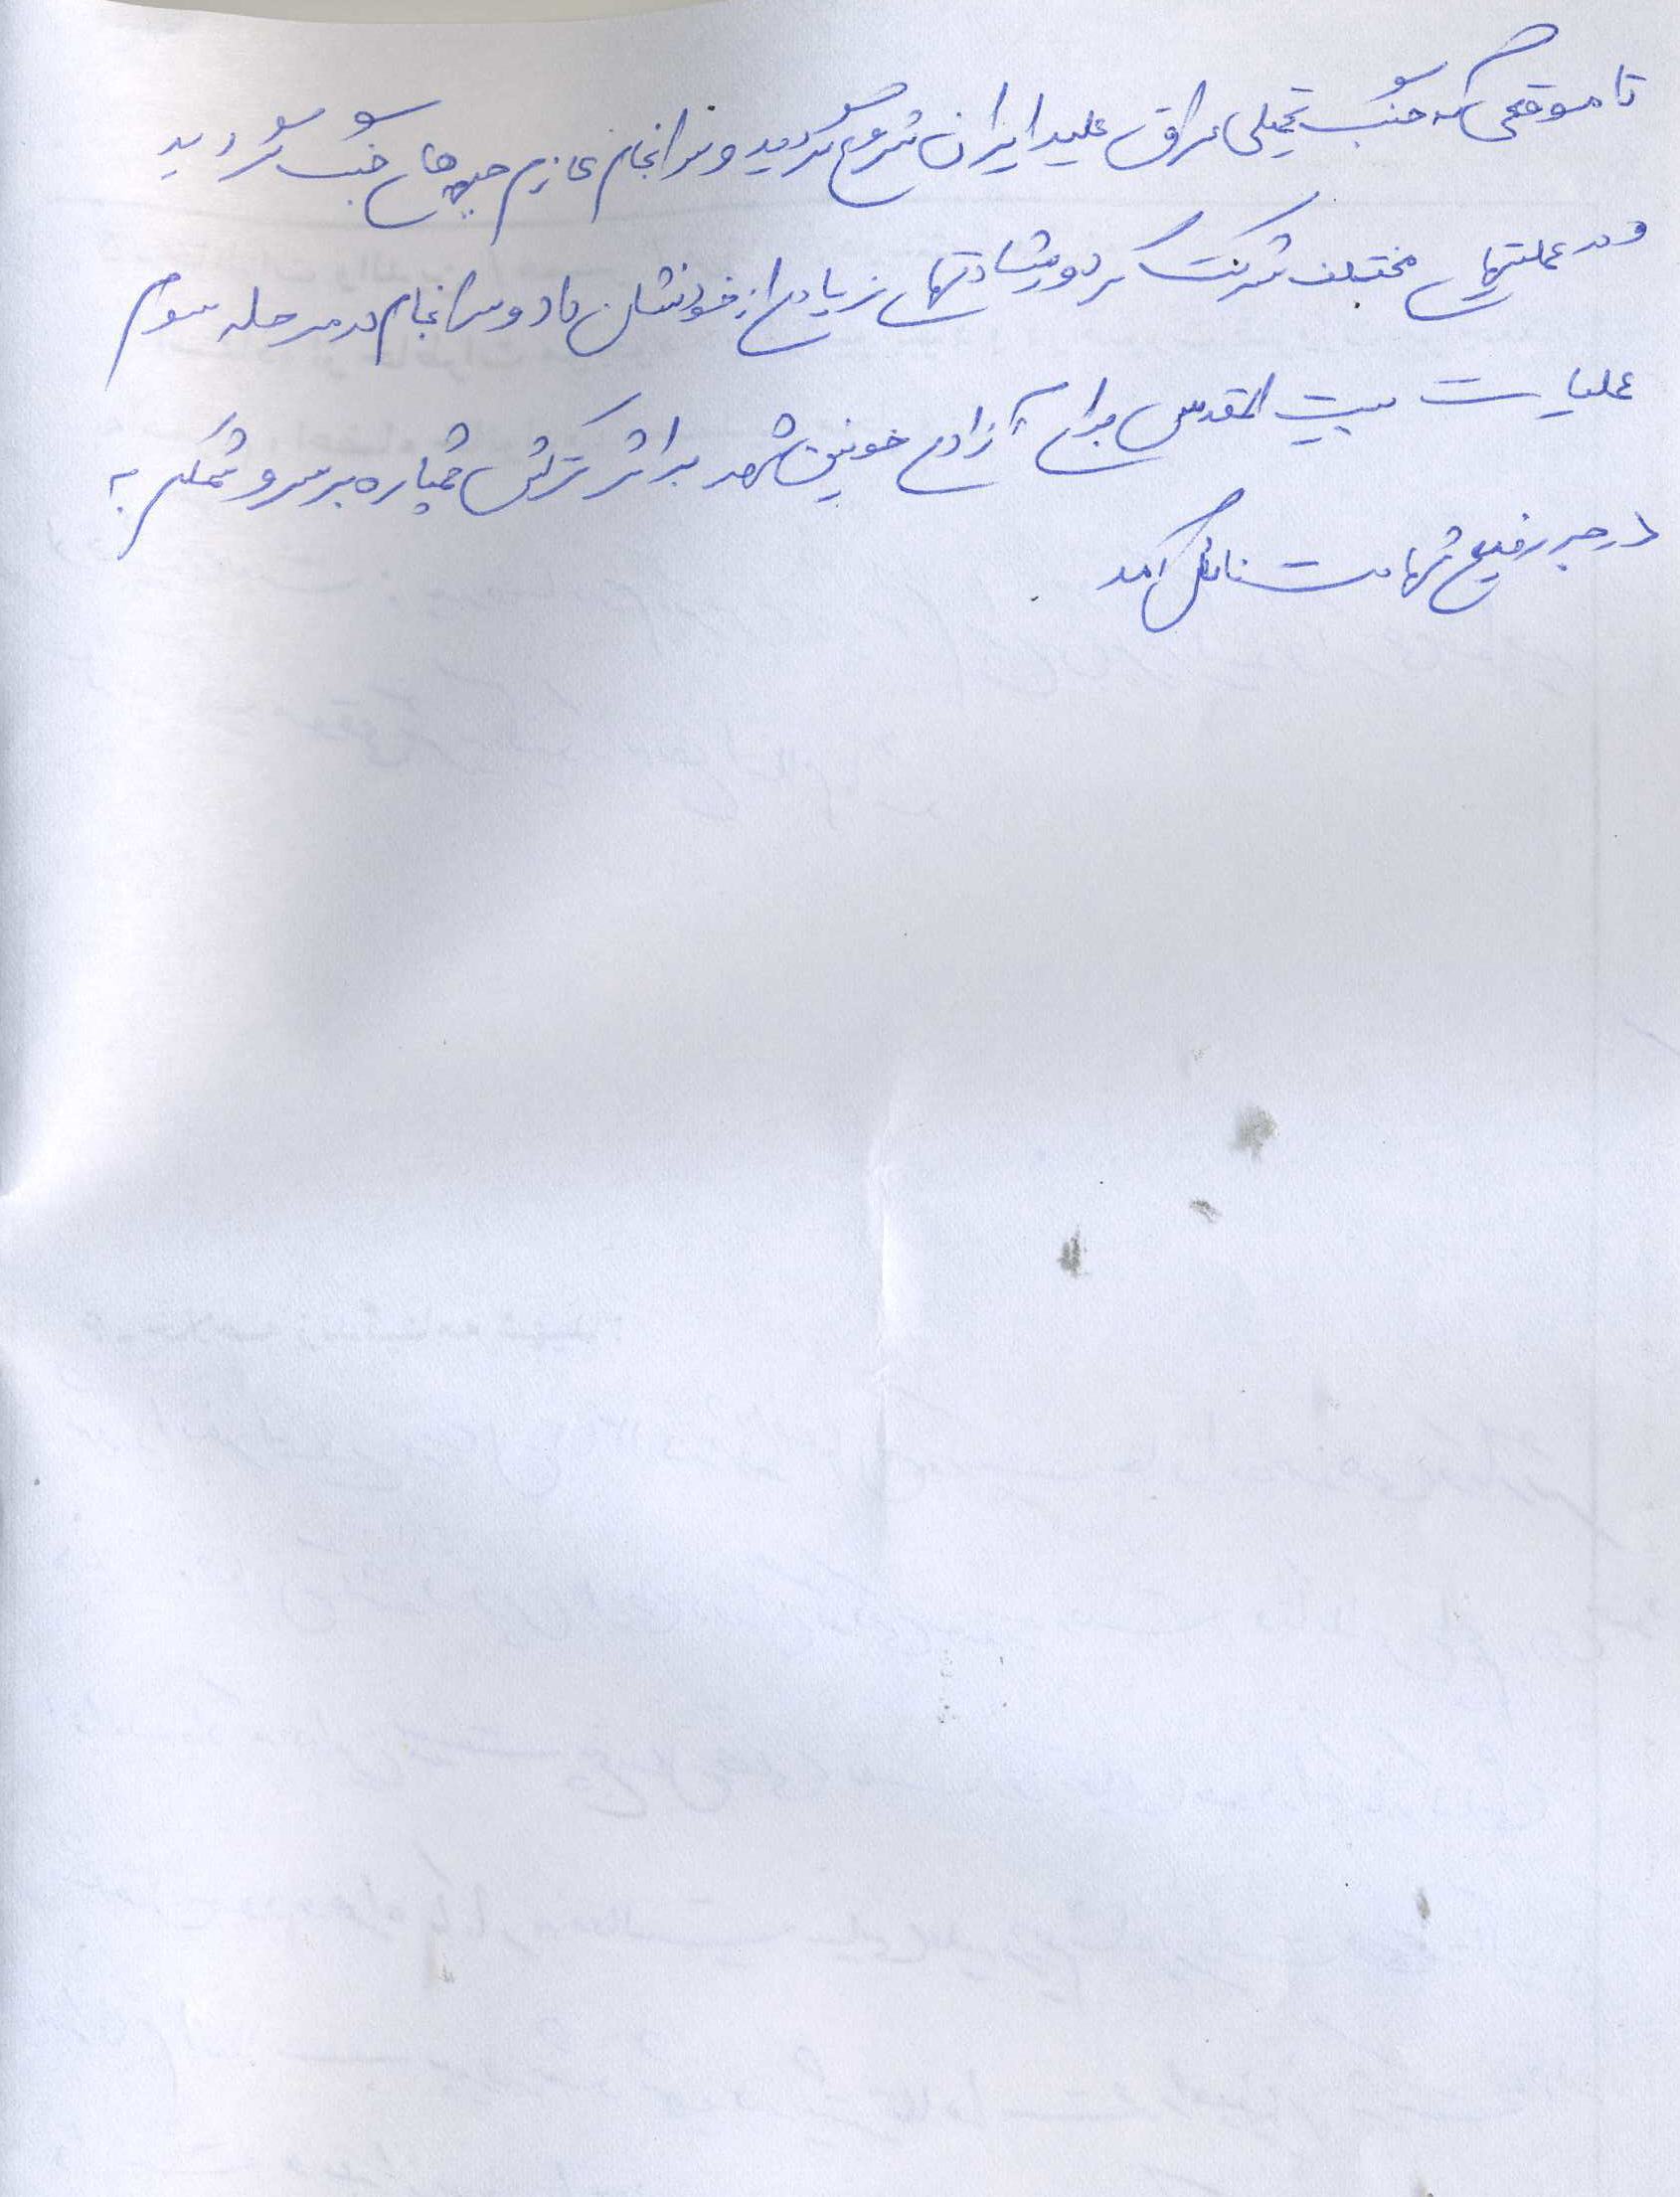 تا موقعی که جنگ تحمیلی عراق علیه ایران شروع گردید و سرانجام عازم جبهه های جنگ گردید
و در عملیتهای مختلف شرکت کرد و رشادتهای زیادی از خود نشان داد و سرانجام در مرحله سوم
عملیات بیت المقدس برای آزادی خونین شهر بر اثر ترکش خمپاره بر سر و شکم به
درجه رفیع شهادت نائل آمد